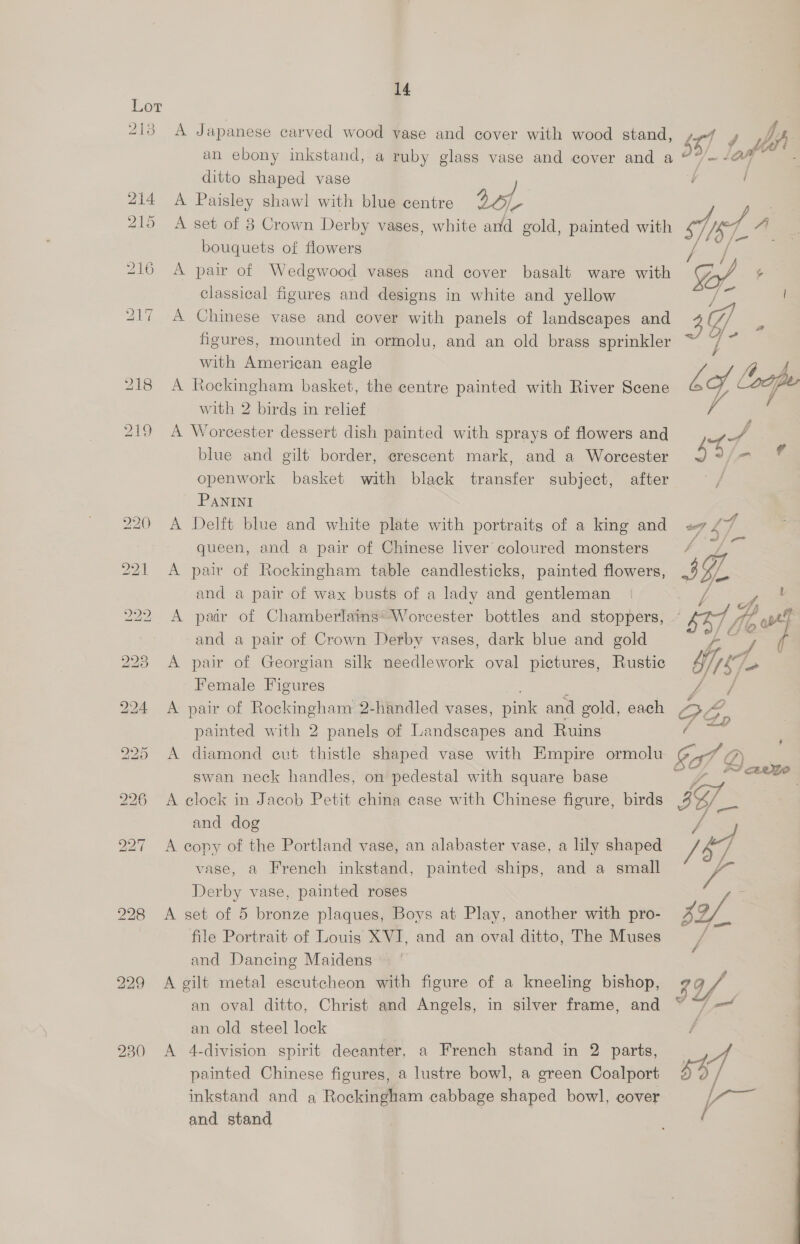 14
Lot
213 A Japanese carved wood vase and cover with wood stand,
an ebony inkstand, a ruby glass vase and cover and a
ditto shaped vase
214 A Paisley shawl with blue centre
215 A set of 3 Crown Derby vases, white and gold, painted with
bouquets of flowers
216 A pair of Wedgwood vases and cover basalt ware with
classical figures and designs in white and yellow
217 A Chinese vase and cover with panels of landscapes and
figures, mounted in ormolu, and an old brass sprinkler
with American eagle
218 A Rockingham basket, the centre painted with River Scene
with 2 birds in relief
219 A Worcester dessert dish painted with sprays of flowers and
blue and gilt border, crescent mark, and a Worcester
openwork basket with black transfer subject, after
PANINI
220 A Delft blue and white plate with portraits of a king and
queen, and a pair of Chinese liver coloured monsters
221 A pair of Rockingham table candlesticks, painted flowers,
and a pair of wax busts of a lady and gentleman
222 A pair of Chamberlains Worcester bottles and stoppers,
and a pair of Crown Derby vases, dark blue and gold
223 A pair of Georgian silk needlework oval pictures, Rustic
Female Figures
224 A pair of Rockingham 2-handled vases, pink and gold, each
painted with 2 panels of Landscapes and Ruins
225 A diamond cut thistle shaped vase with Empire ormolu
swan neck handles, on pedestal with square base
226 A clock in Jacob Petit china case with Chinese figure, birds
and dog
227 A copy of the Portland vase, an alabaster vase, a lily shaped
vase, a French inkstand, painted ships, and a small
Derby vase, painted roses
228 A set of 5 bronze plaques, Boys at Play, another with pro-
file Portrait of Louis XVI, and an oval ditto, The Muses
and Dancing Maidens
229 A gilt metal escutcheon with figure of a kneeling bishop,
an oval ditto, Christ and Angels, in silver frame, and
an old steel lock
230 A 4-division spirit decanter, a French stand in 2 parts,
painted Chinese figures, a lustre bowl, a green Coalport
inkstand and a Rockingham cabbage shaped bowl, cover
and stand